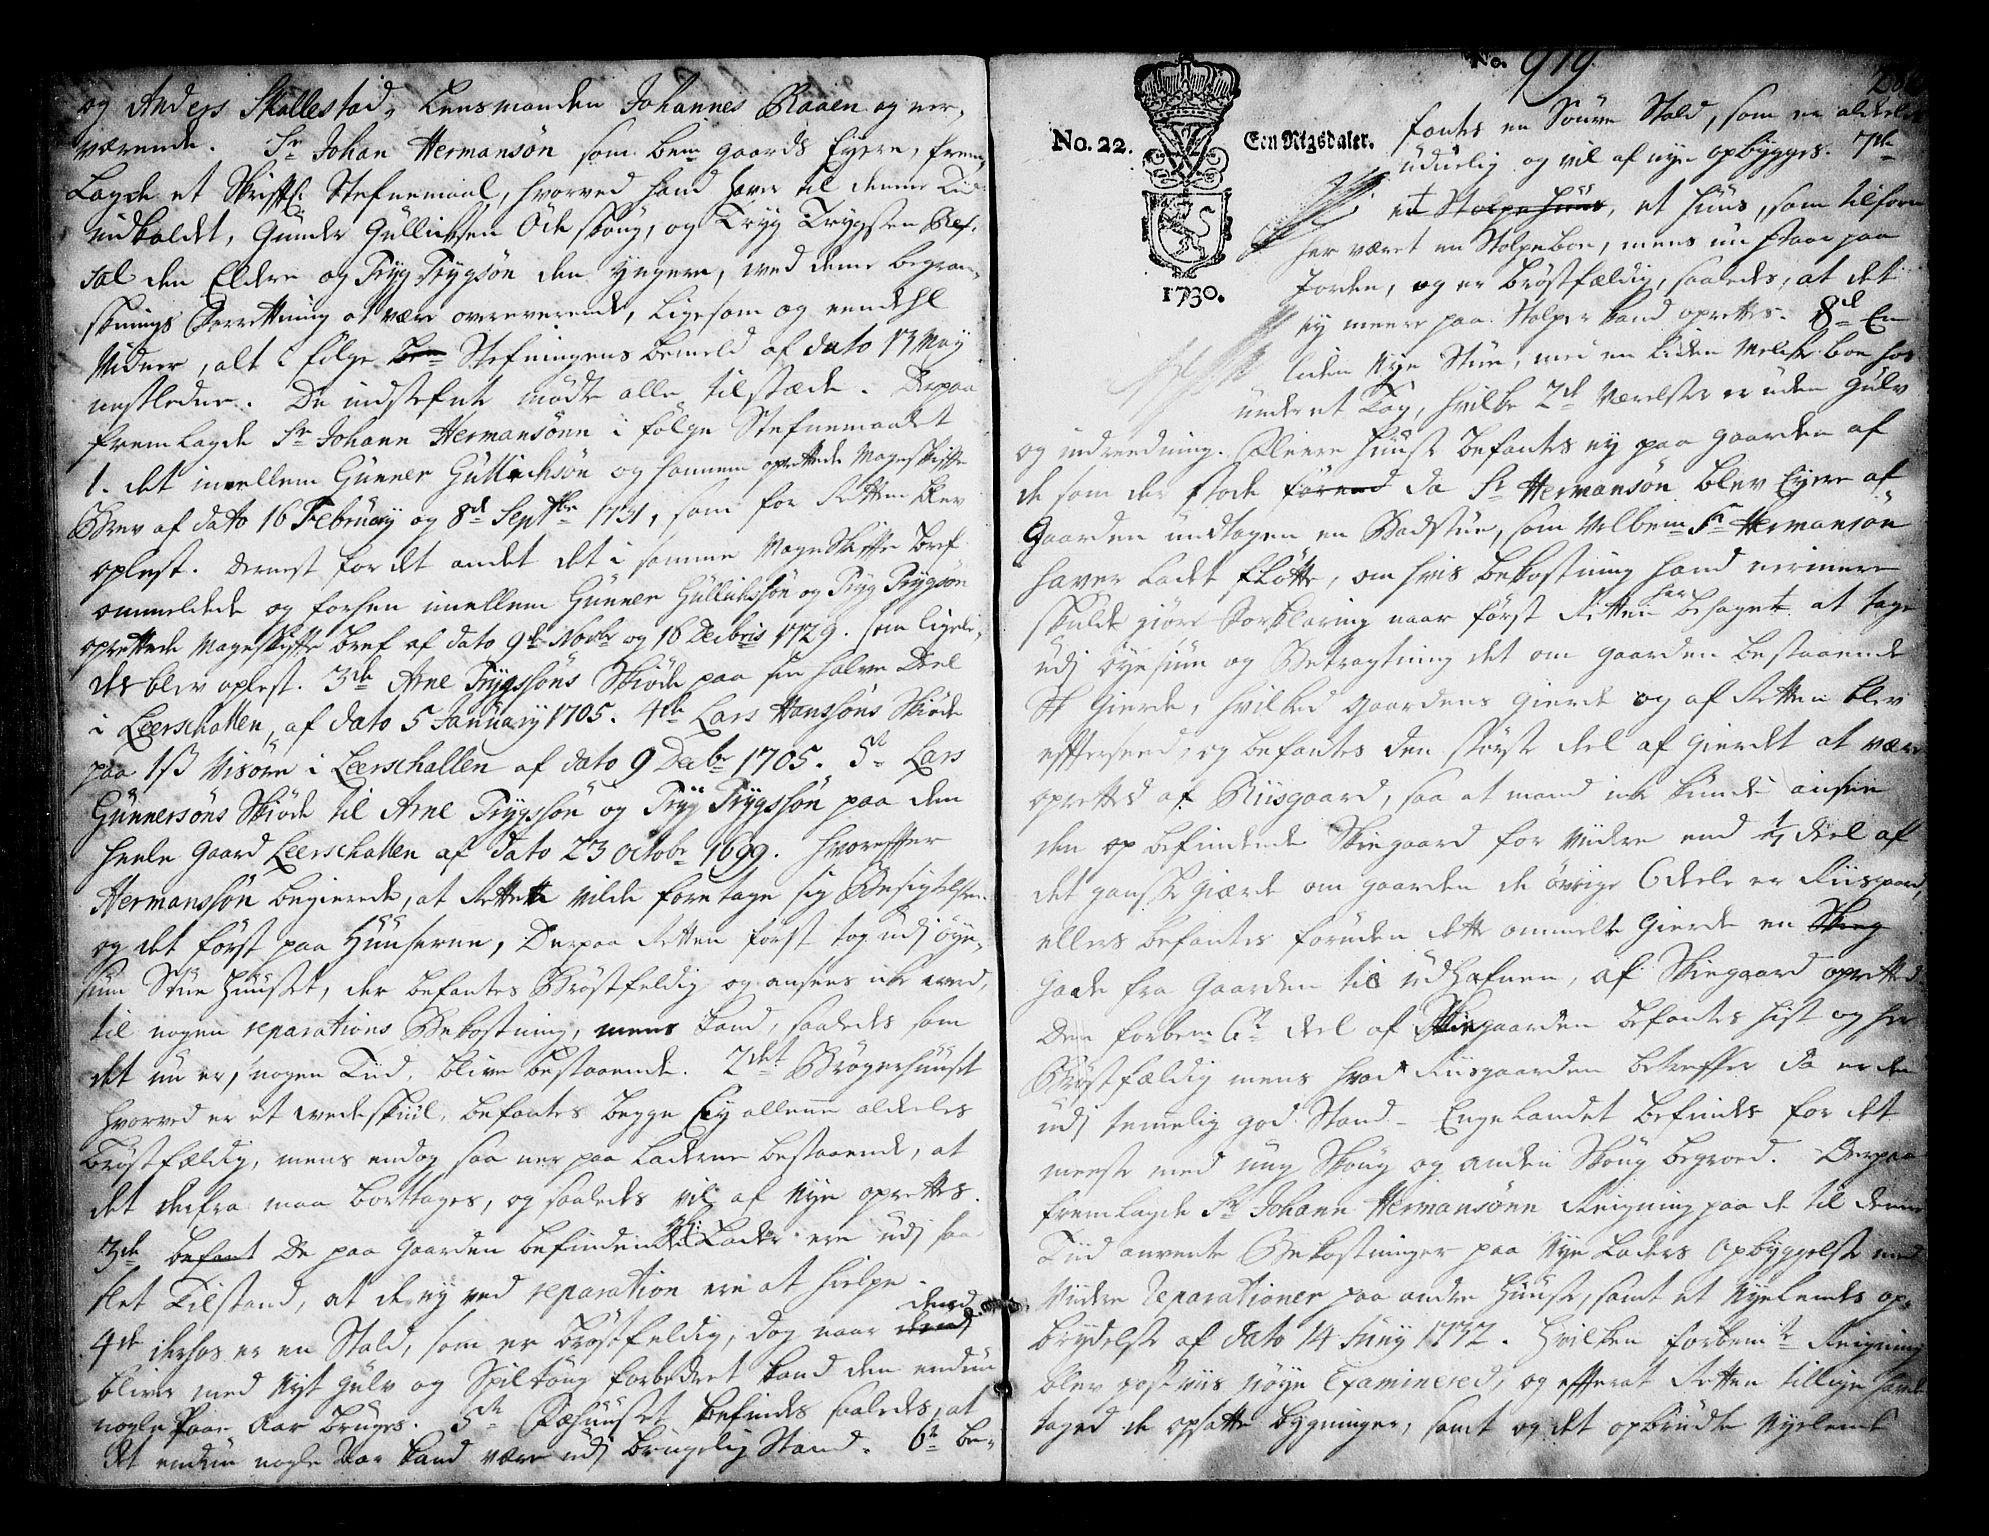 og Anders Skallestad, Lensmanden Johannes Raaen og ner,
værende. Sr Johan Hermansøn som bemte gaards Eyere, frem,
Lagde et Skriftl. Stefnemaal, hvorved hand haver til denne Tid
indkaldet, Gunder Gullichsen Ödeskoug, og Tryg Trygsen Ref,
sal den Eldre og Tryg Trygsøn den yngere, ved denne begran,
sknings Forretning at være overeværende, Ligesom og eendehl
Vidner, alt i følge Stefningens bemeld af dato 13 May
nestleden. De indstefnte mødte alle tilstæde. Derpaa
fremlagde Sr Johann Hermansönn i følge Stefnemaalet
1. det imellem Gunner Gullichsön og hannem oprettede Mageskifte
Brev af dato 16 February og 8de Septbr 1731, som for Retten blev
oplest. Dernest for det andet det i samme MageSkifte Bref
ommeldede og forhen imellem Gunner Gullichsön og Tryg Trygsön
oprettede Mageskifte Bref af dato 9de Novbr og 16 Decbris 1729. som ligele,
des blev oplest. 3de Arne Trygssöns Skiöde paa sin halve Deel
i Leerschallen, af dato 5 January 1705. 4de Lars Hanssöns Skiöde
paa 1ß Visöre i Leerschallen af dato 9 Decbr 1705. 5te Lars
Gunnersöns Skiöde til Arne Trygssön og Tryg Trygssön paa den
heele Gaard Leerschallen af dato 23 octobr 1699. Hvorefter
Hermanssön begierede, at Retten vilde foretage sig Besigtelsen
og det först paa Huuserne, Derpaa Retten först tog udj öye,
siun Stue Huuset, der befantes Bröstfeldig og ansees icke værd,
til nogen reparations Bekostning, mens kand, saaledes som
det nu er, nogen Tiid, blive bestaaende. 2det Bröggerhuuset
hvorved er et vedeskiul, befantes begge Ey allene aldeles
bröstfældig, mens endog saa ner paa Laderne bestaaende, at
det derfra maa borttages, og saaledes vil af Nye oprettes.
3de befant De paa Gaarden befindende Lader ere udj saa
slet Tilstand, at de ey ved reparation ere at hielpe
4de ibehos er en Stald, som er bröstfeldig, dog naar dend
bliver med Nyt Gulv og Spiltoug forbedret kand den endnu
nogle faae Aar bruges. 5te Fæhuuset befindes saaledes, at
det endnu nogle Aar kand være udj brugelig Stand. 6te be,
No. 919
No. 22. Een Rigsdaler.
1730.
fantes en Souve Stald, som er aldeeles
uduelig og vil af nye opbygges. 7de
et Stolpehuus, et Huus, som tilforn
har været en Stolpeboe, mens nu staar paa
Jorden, og er bröstfældig, saaledes, at det
ey meere paa Stolper kand oprettes. 8de En
liden Nye Stue, med en liden Melcke boe hos
under et Tag, hvilke 2de Værelser er uden Gulv
og indreedning. Fleere Huuse befantes ey paa gaarden af
de som der stode förend da Sr Hermansön blev Eyere af
Gaarden undtagen en Badstue, som Velbemte Sr Hermansön
haver ladet flötte, om hvis bekostning hand nermere
skulde giöre Forklaring naar först Retten har behaget at tage
udj öyesiun og Betragtning det om gaarden bestaaende
Gierde, hvilked Gaardens Gierde og af Retten blev
effterseed, og befantes den störste deel af Gierdet at være
oprettet af Riisgaard, saa at mand icke kunde ansee
den op befindende Skiegaard for videre end 1/7 deel af
det gandske Giærde om gaarden de övrige 6 deele er Riisgaard,
ellers befantes foruden dette ommelte Gierde en Skieg
Gade fra Gaarden til udhafnen, af Skiegaard oprettet.
Den forbemte 6te deel af Skiegaarden befantes hist og her
Bröstfældig mens hvad Riisgaarden betreffer da er den
udj temmelig god Stand. Engelandet befindes for det
meeste med ung Skoug og anden Skoug begroed. Derpaa
fremlagde Sr Johann Hermansönn Reigning paa de til denne
Tiid anvente Bekostninger paa Nye Laders Opbyggelse med
videre Reparationer paa andre Huuse, samt et Nyelends op,
brydelse af dato 14 Juny 1732. Hvilken forbemte Reigning
blev post viis nöye Examinered, og effterat Retten tillige havde
taged de opsatte bygninger, samt og det opbrudte Nyelend